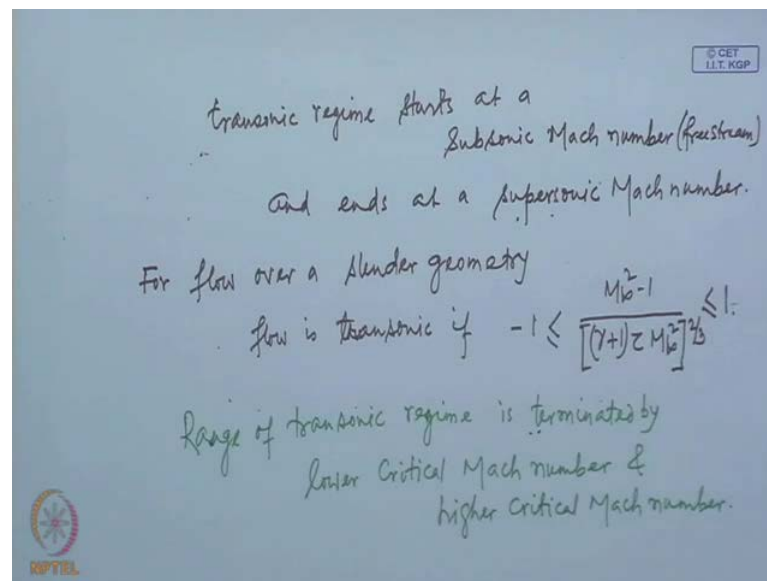 © CET
I.I.T. KGP
transonic regime starts at a
Subsonic Mach number (freestream)
and ends at a supersonic Mach number.
For flow over a slender geometry
flow is transonic if -1 ≤ (M∞²-1)/[(γ+1)τ M∞²]^(2/3) ≤ 1.
Range of transonic regime is terminated by
lower Critical Mach number &
higher critical Mach number.
NPTEL